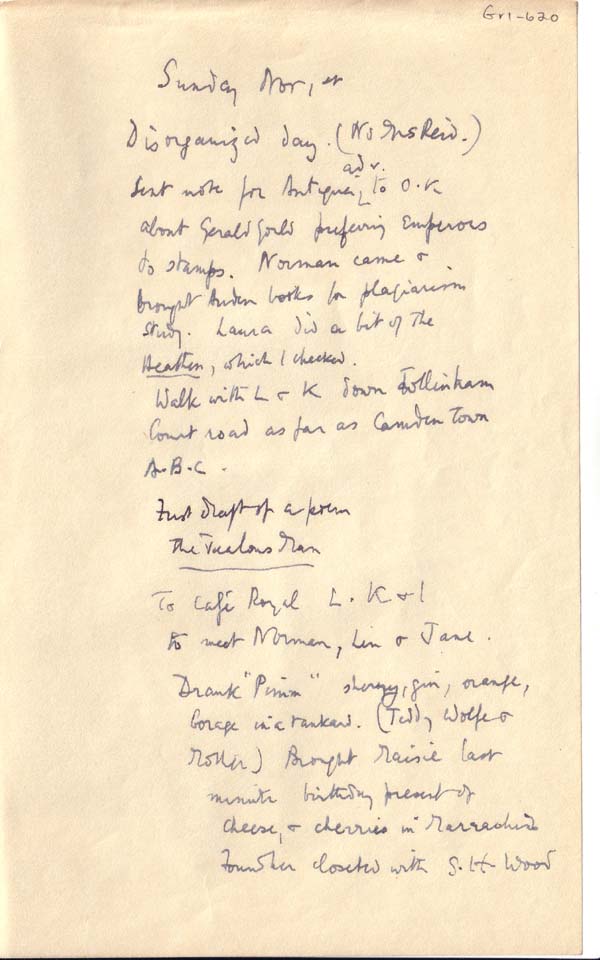 Gr1-620
Sunday Nov 1st
Disorganized day. (No Mrs Reid.)
adv.
Sent note for Antigua, to O.K
about Gerald Gould preferring Emperors
to stamps. Norman came &
brought Auden books for plagiarism
study. Laura did a bit of the
Heathen, which I checked.
Walk with L & K down Tottenham
Court road as far as Camden Town
A.B.C.
First draft of a poem
The Jealous Man
To Café Royal L. K & I
to meet Norman, Len & Jane.
Drank "Pimm" sherry, gin, orange,
borage in a tankard. (Teddy Wolfe &
Mother) Brought Maisie last
minute birthday present of
cheese, & cherries in Marraschino
Found her closeted with S. H. Wood